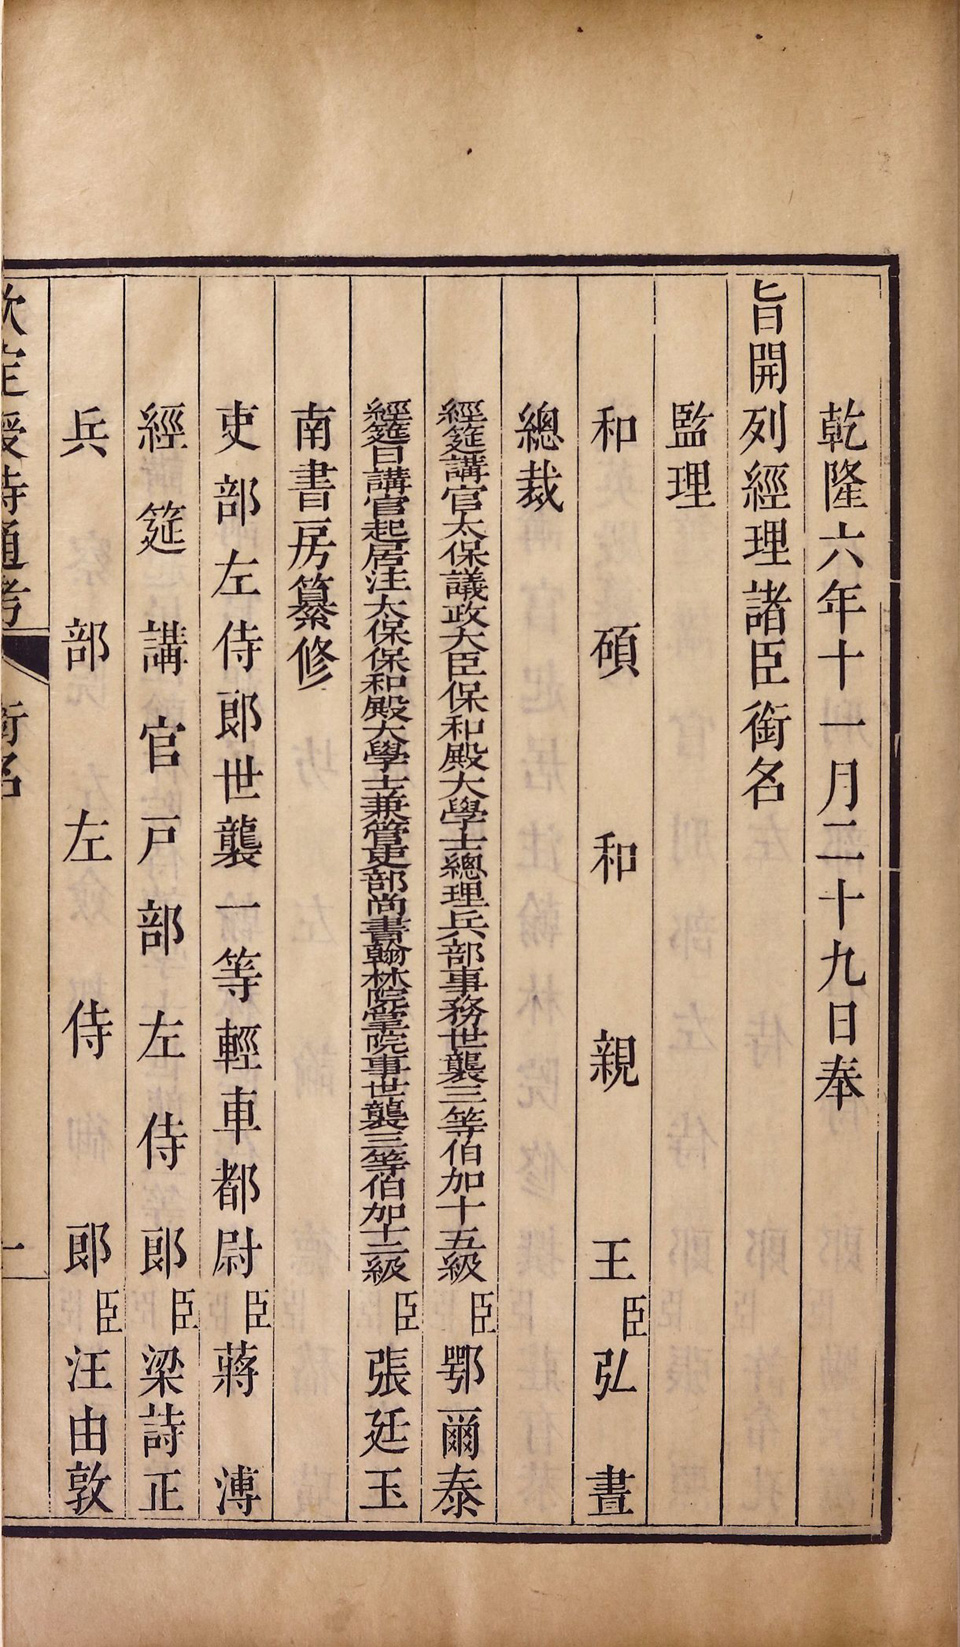 乾隆六年十一月二十九日奉
旨開列經理諸臣銜名
監理
和碩和親王臣弘晝
總裁
經筵講官太保議政大臣保和殿大學士總理兵部事務世襲三等伯加十五級臣鄂爾泰
經筵日講官起居注太保保和殿大學士兼管吏部尚書翰林院掌院事世襲三等伯加十二級臣張廷玉
南書房纂修
吏部左侍郎世襲一等輕車都尉臣蔣溥
經筵講官戶部左侍郎臣梁詩正
兵部左侍郎臣汪由敦
欽定授時通考 銜名 一